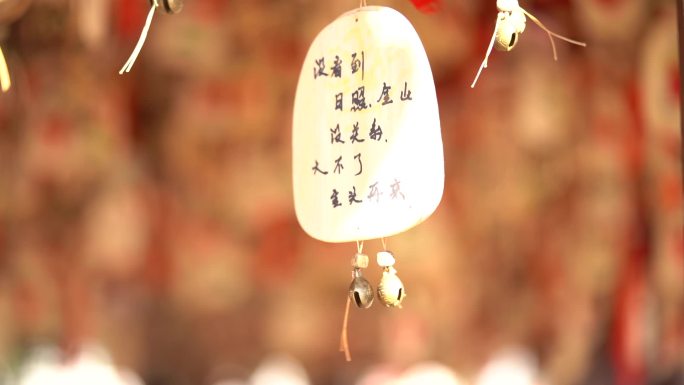 没看到
日照.金山
没关系.
大不了
重头再来